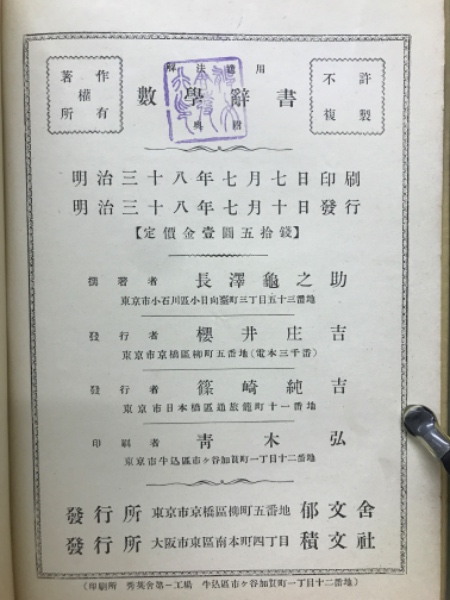 解法適用
數學辭書
著作
權
所有
不許
複製
明治三十八年七月七日印刷
明治三十八年七月十日發行
【定價金壹圓五拾錢】
撰著者 長澤龜之助
東京市小石川區小日向臺町三丁目五十三番地
發行者 櫻井庄吉
東京市京橋區柳町五番地(電本三千番)
發行者 篠崎純吉
東京市日本橋區通旅籠町十一番地
印刷者 青木弘
東京市牛込區市ヶ谷加賀町一丁目十二番地
發行所 東京市京橋區柳町五番地 郁文舍
發行所 大阪市東區南本町四丁目 積文社
(印刷所 秀英舍第一工場 牛込區市ヶ谷加賀町一丁目十二番地)